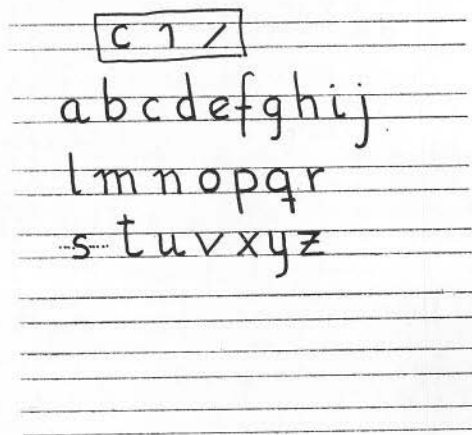 c 1 /
a b c d e f g h i j
l m n o p q r
s t u v x y z